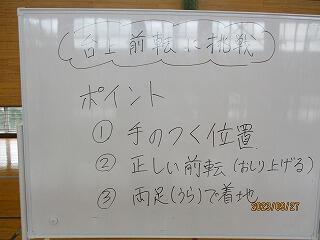 台上前転に挑戦
ポイント
① 手のつく位置
② 正しい前転(おしり上げる)
③ 両足(うら)で着地
2023/09/27